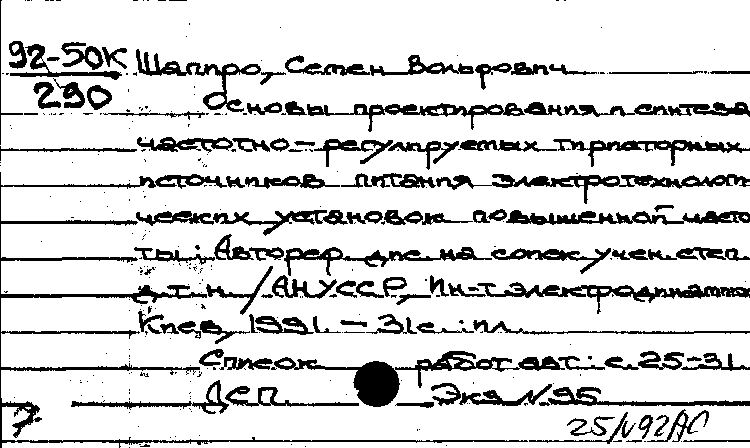 92-50К Шапиро, Семен Вольфович
290 Основы проектирования и синтеза
частотно-регулируемых тиристорных
источников питания электротехнологи
ческих установок повышенной часто
ты : Автореф. дис. на соиск. учен. степ.
д.т.н. / АН УССР, Ин-т электродинамики
Киев, 1991. - 31 с. : ил.
Список работ авт.: с. 25-31
ДСП. Экз N 95
7 25/V 92 АС